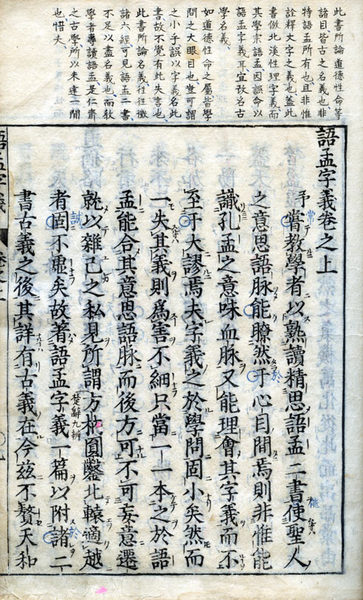 此書所論道德性命等
諸目皆古之名義也非
特語孟所有也且非惟
詮釋文字之義也蓋此
書倣北溪性理字義而
其學宗語孟因誤命以
語孟字義耳宜改名古
學名義
如道德性命之屬皆學
問之大眼目也豈可謂
之小乎誤以字義名此
書故不覺有此失言也
此書所論名義往往徵
諸六經可見語孟二書
不足以盡名義也而敎
學者專讀語孟是仁齋
之古學所以未達一間
也惜夫
語孟字義卷之上
予嘗教學者以熟讀精思語孟二書使聖人
之意思語脉能瞭然于心目間焉則非惟能
識孔孟之意味血脉又能理會其字義而不
至于大謬焉夫字義之於學問固小矣然而
一失其義則爲害不細只當一一本之於語
孟能合其意思語脉而後方可不可妄意遷
就以雜己之私見所謂方枘圓鑿北轅適越
楚辭九辨
者固不虛矣故著語孟字義一篇以附諸二
書古義之後其詳有古義在今玆不贅天和
語孟字義